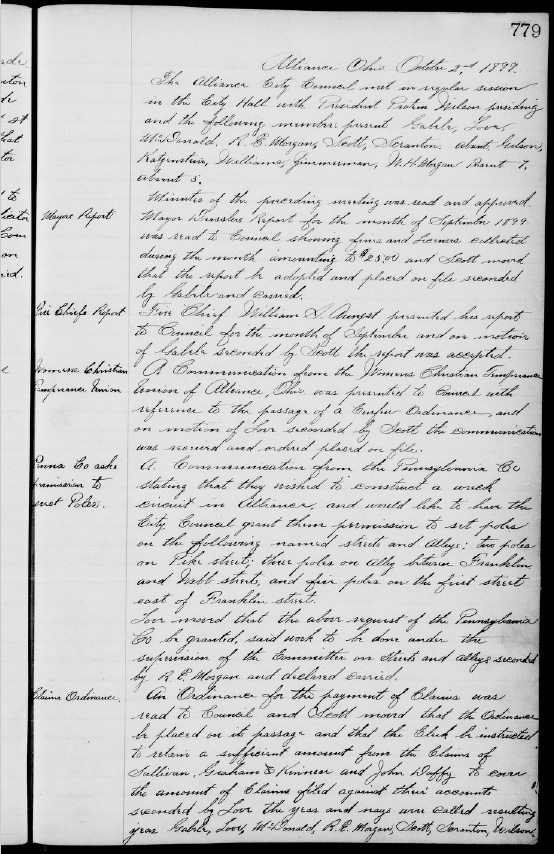 779
Alliance Ohio October 2nd 1899.
The Alliance City Council met in regular session
in the City Hall with President Protem Wilson presiding
and the following member present Gable, Love,
McDonald, R. E. Morgan, Scott, Scranton. absent, Gilson,
Katzenstein, Williams, Zimmerman, W. H. Morgan Present 7,
absent 5.
Minutes of the preceding meeting was read and approved.
Mayors Report
Mayor Report for the month of September 1899
was read to Council showing fines and Licenses collected
during the month amounting to $25.00 and Scott moved
that the report be adopted and placed on file seconded
by Gable and carried.
Fire Chiefs Report
Fire Chief William S. presented his report
to Council for the month of September and on motion
of Gable seconded by Scott the report was accepted.
Womens Christian
Temperance Union
A Communication from the Womens Christian Temperance
Union of Alliance, Ohio, was presented to Council with
reference to the passage of a Curfew Ordinance, and
on motion of Love seconded by Scott the communication
was received and ordered placed on file.
Penna Co asks
permission to
erect Poles.
A Communication from the Pennsylvania Co
stating that they wished to construct a wreck
circuit in Alliance, and would like to have the
City Council grant them permission to set poles
on the following named streets and Alleys: two poles
on Pike street; three poles on Ally between Franklin
and Webb streets, and five poles on the first street
east of Franklin street.
Love moved that the above request of the Pennsylvania
Co be granted, said work to be done under the
supervision of the Committee on Streets and Alleys seconded
by R. E. Morgan and declared carried.
Claims Ordinance,
An Ordinance for the payment of Claims was
read to Council and Scott moved that the Ordinance
be placed on its passage and that the Clerk be instructed
to retain a sufficient amount from the Claims of
Sullivan, Graham & Kinnear and John Duffy to cover
the amount of Claims filed against their accounts
seconded by Love the yeas and nays were called resulting
yeas Gable, Love, McDonald, R. E. Morgan, Scott, Scranton, Wilson,